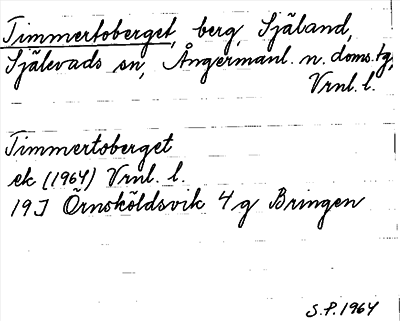 Timmertoberget, berg, Själand,
Själevads sn, Ångermanl. n. doms.tg,
Vrnl. l.
Timmertoberget
ek (1964) Vrnl. l.
19J Örnsköldsvik 4 g Bringen
S.P. 1964